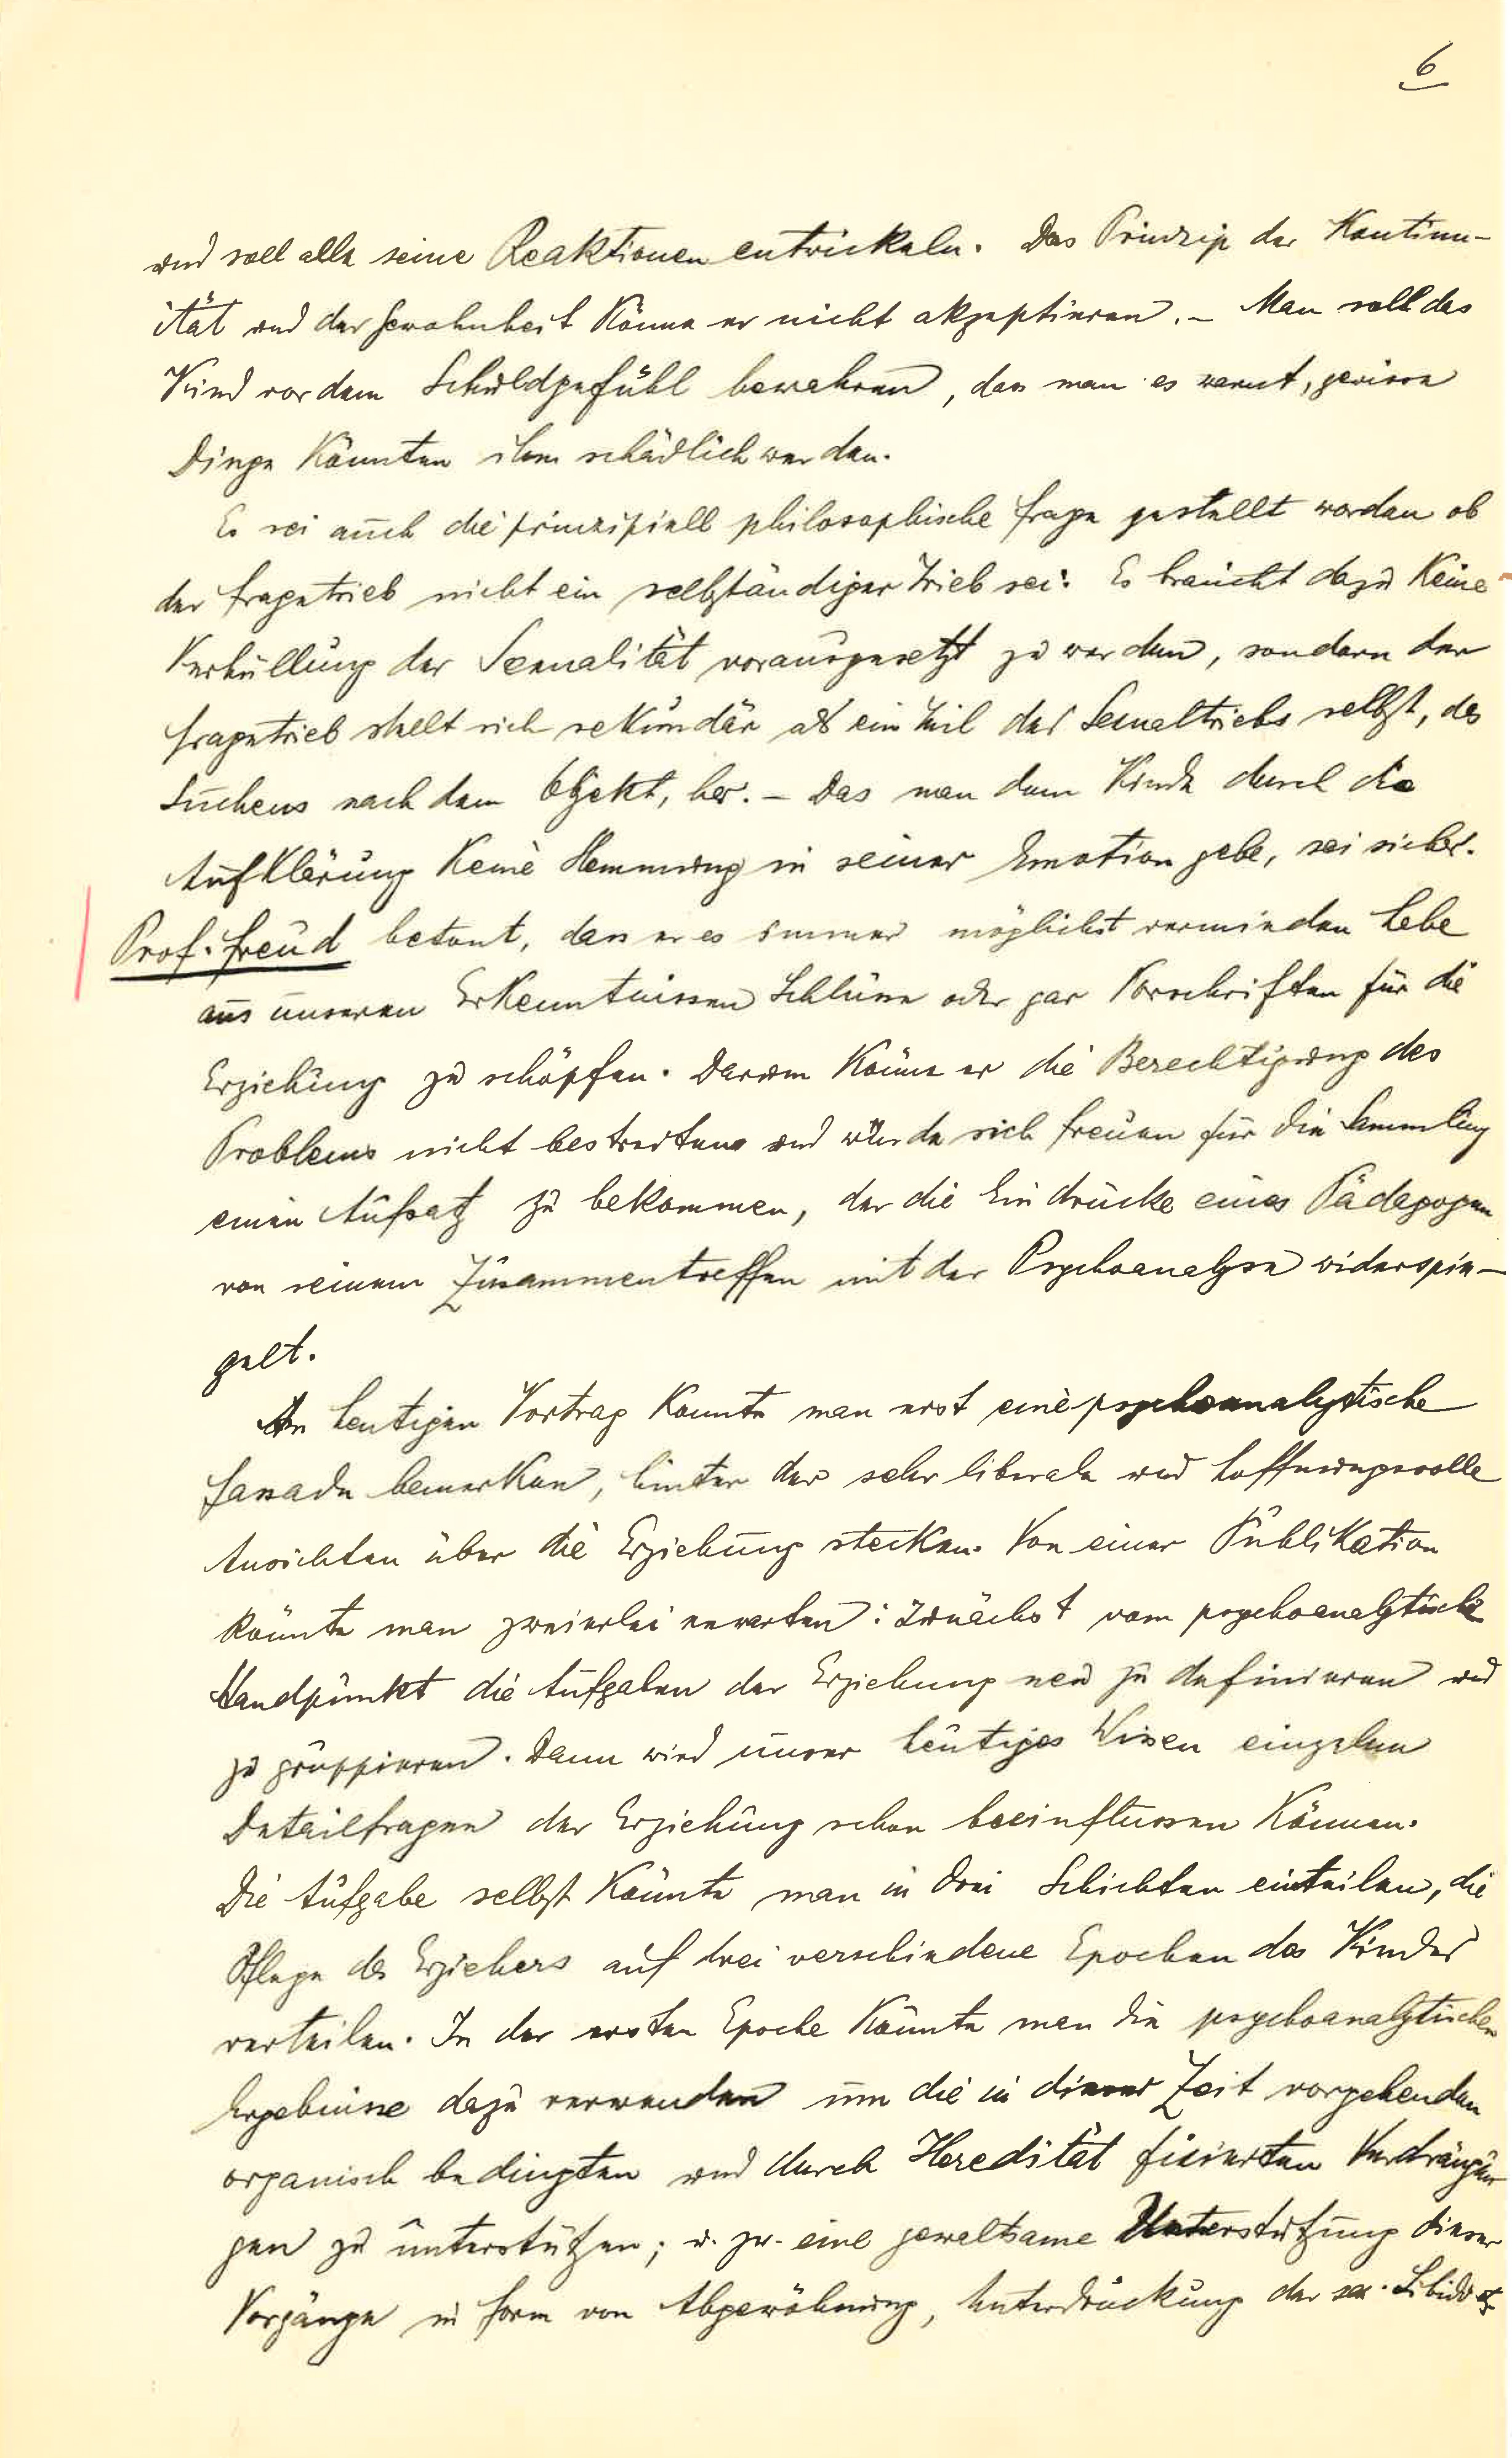 6
und soll alle seine Reaktionen entwickeln. Das Prinzip der Kontinu-
ität und der Gewohnheit könne er nicht akzeptieren. – Man soll das
Kind vor dem Schuldgefühl bewahren, dass man es warnt, gewisse
Dinge könnten ihm schädlich werden.
Es sei auch die prinzipiell philosophische Frage gestellt worden ob
der Fragetrieb nicht ein selbständiger Trieb sei: Es braucht dazu keine
Verhüllung der Sexualität vorausgesetzt zu werden, sondern der
Fragetrieb stellt sich sekundär als ein Teil des Sexualtriebs selbst, des
Suchens nach dem Objekt, her. – Das man dem Kinde durch die
Aufklärung keine Hemmung in seiner Emotion gebe, sei sicher.
Prof. Freud betont, dass er es immer möglichst vermieden habe
aus unseren Erkenntnissen Schlüsse oder gar Vorschriften für die
Erziehung zu schöpfen. Darum könne er die Berechtigung des
Problems nicht bestreiten und würde sich freuen für die Sammlung
einen Aufsatz zu bekommen, der die Eindrücke eines Pädagogen
von seinem Zusammentreffen mit der Psychoanalyse widerspie-
gelt.
Am heutigen Vortrag konnte man erst eine psychoanalytische
Fassade bemerken, hinter der sehr liberale und hoffnungsvolle
Ansichten über die Erziehung stecken. Von einer Publikation
könnte man zweierlei erwarten: Zunächst vom psychoanalytische
Standpunkt die Aufgaben der Erziehung neu zu definieren und
zu gruppieren. Dann wird unser heutiges Wissen einzelne
Detailfragen der Erziehung schon beeinflussen können.
Die Aufgabe selbst könnte man in drei Schichten einteilen, die
Pflege des Erziehers auf drei verschiedene Epochen des Kindes
verteilen. In der ersten Epoche könnte man die psychoanalytischen
Ergebnisse dazu verwenden um die in dieser Zeit vorgehenden
organisch bedingten und durch Heredität fixierten Verdrängun
gen zu unterstützen; u. zw. eine gewaltsame Unterstützung dieser
Vorgänge in Form von Abgewöhnung, Unterdrückung der sex. Libido etz.